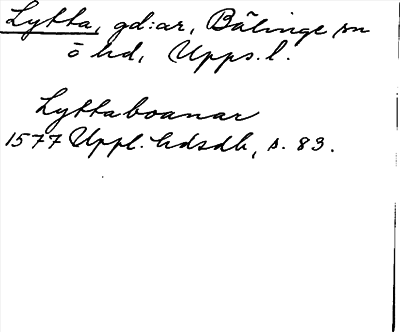 Lytta, gd:ar, Bälinge sn
ō hd, Upps. l.
Lyttaboanar
1577 Uppl. hdsdb, s. 83.